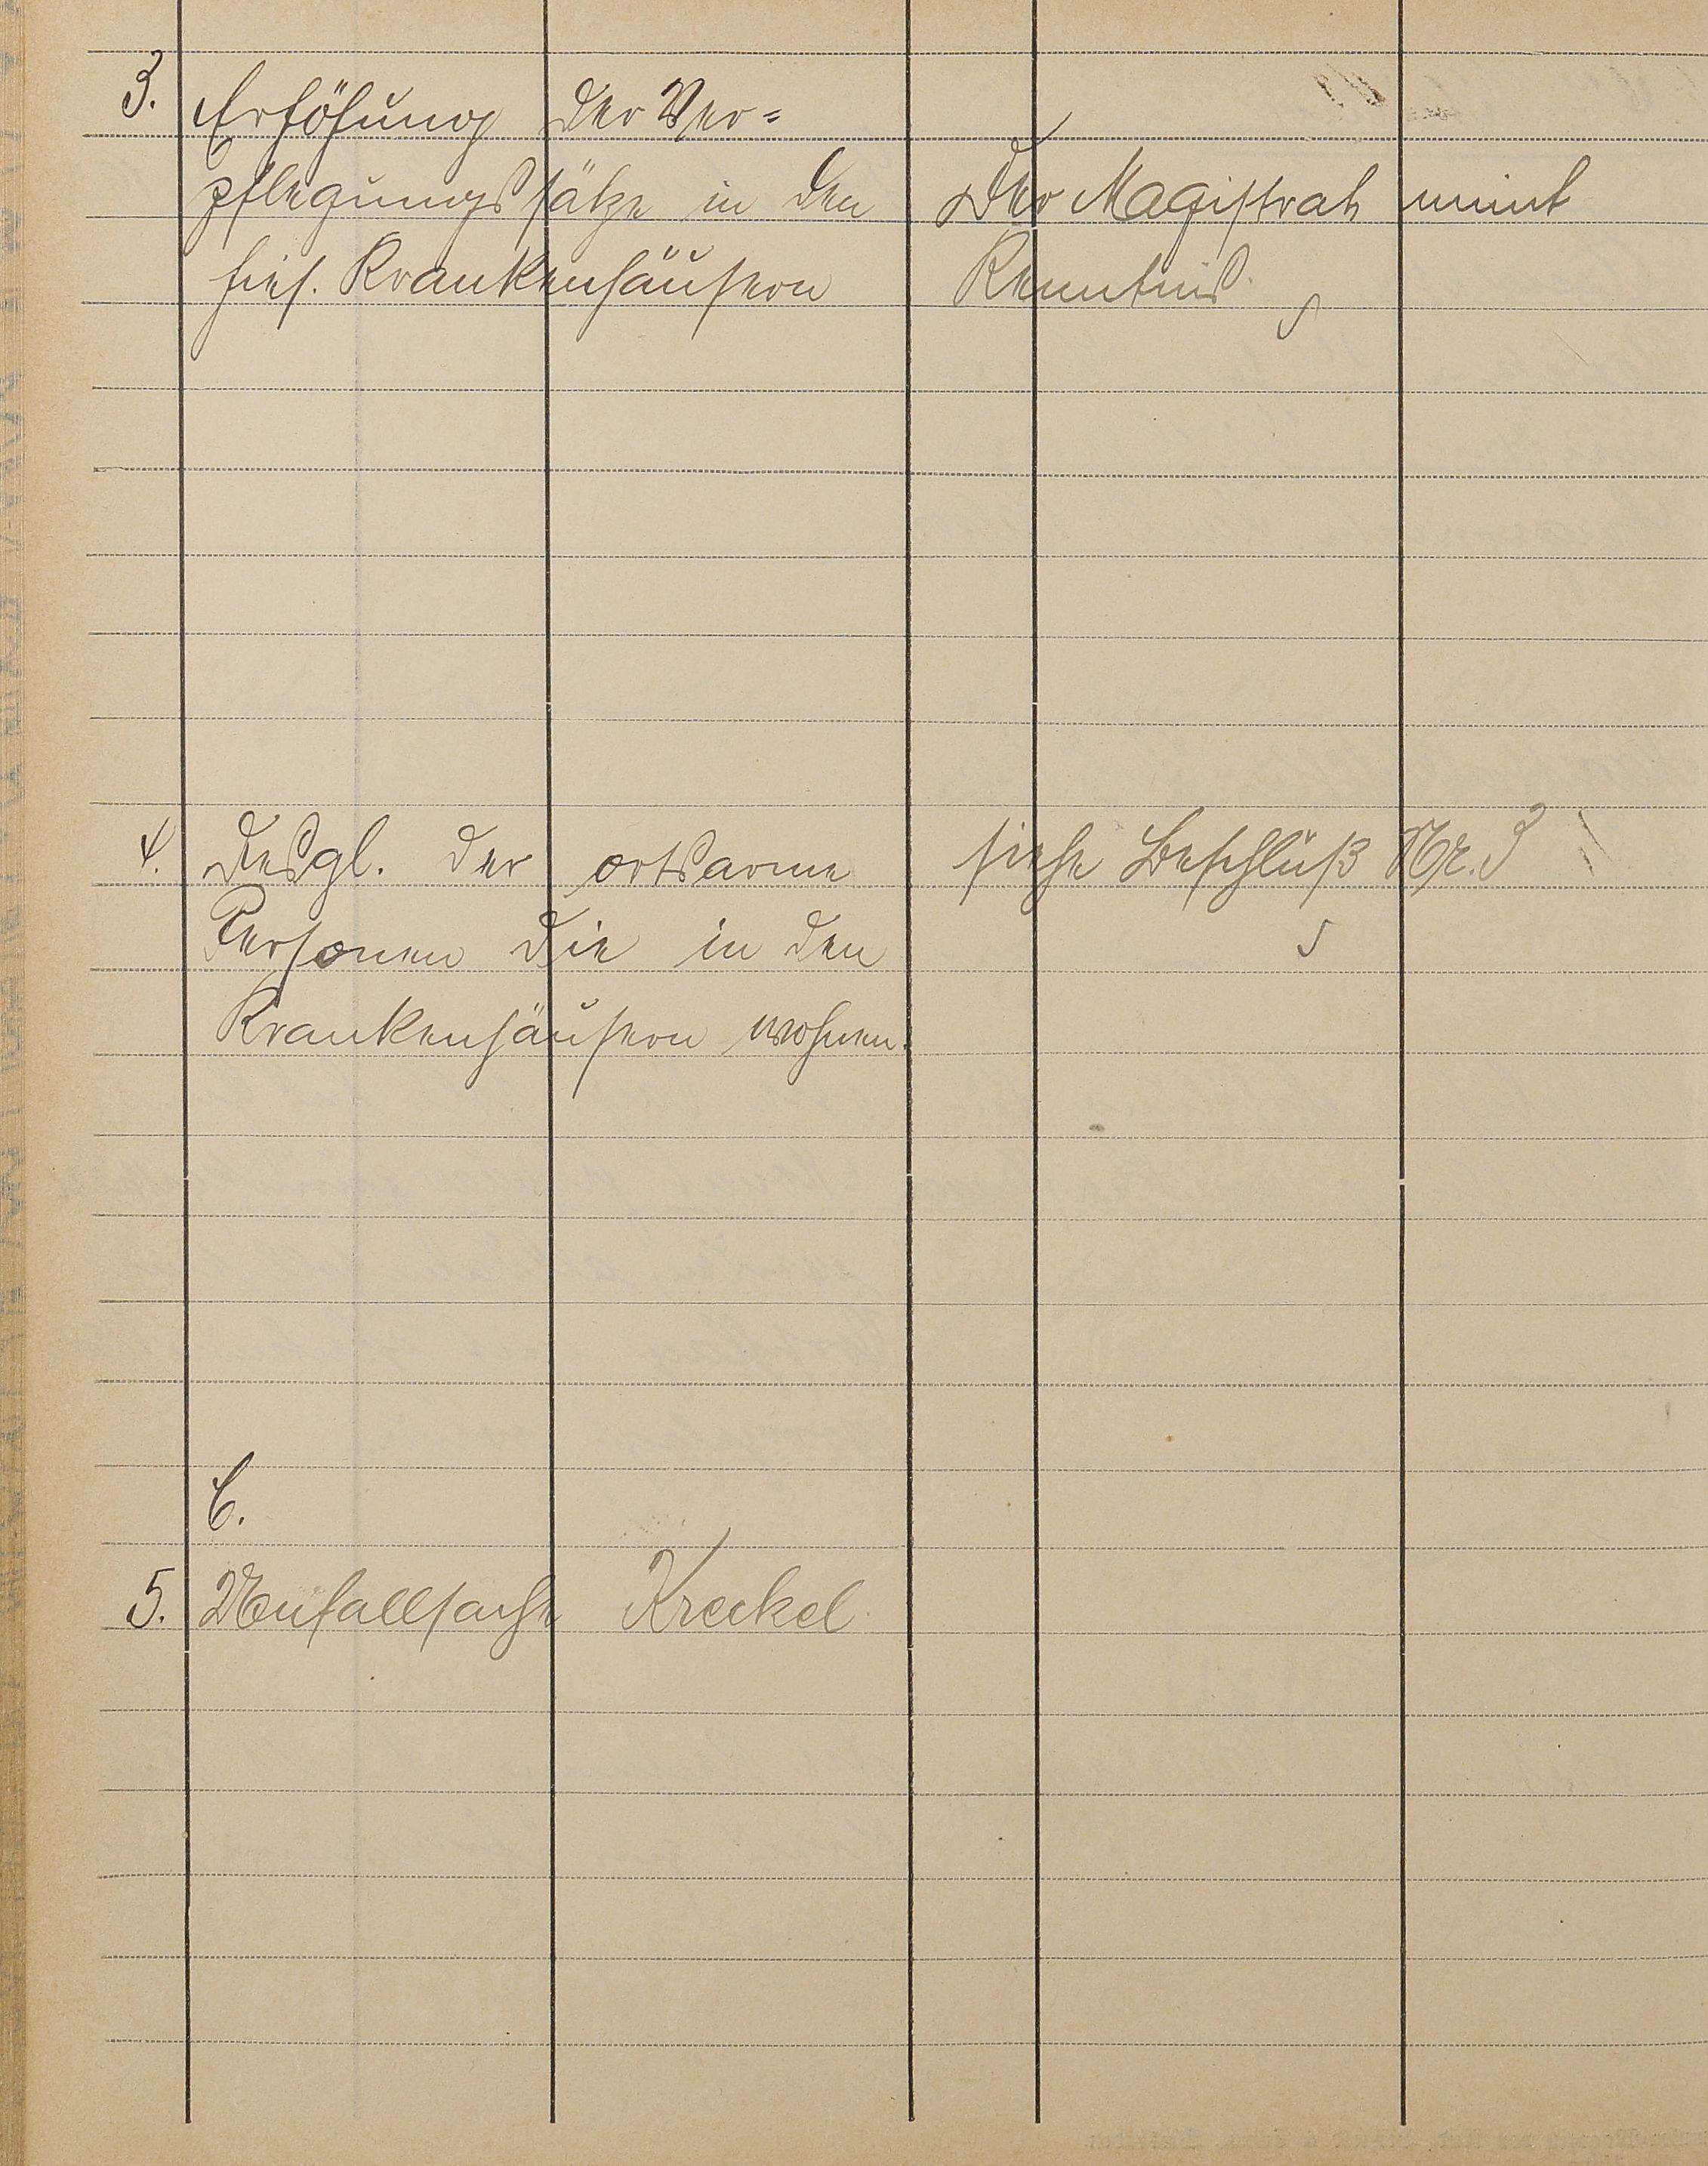 3. Erhöhung der Ver=
pflegungssätze in den
hies. Krankenhäusern
Der Magistrat nimt
Kenntnis.
4. Desgl. der ortsarme
Personen die in den
Krankenhäusern wohnen.
siehe Beschluß Nr. 3
C.
5. Unfallsache Kreckel